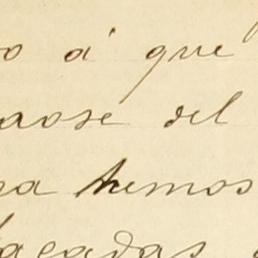 o á que
aose del
sa hemos
agadas